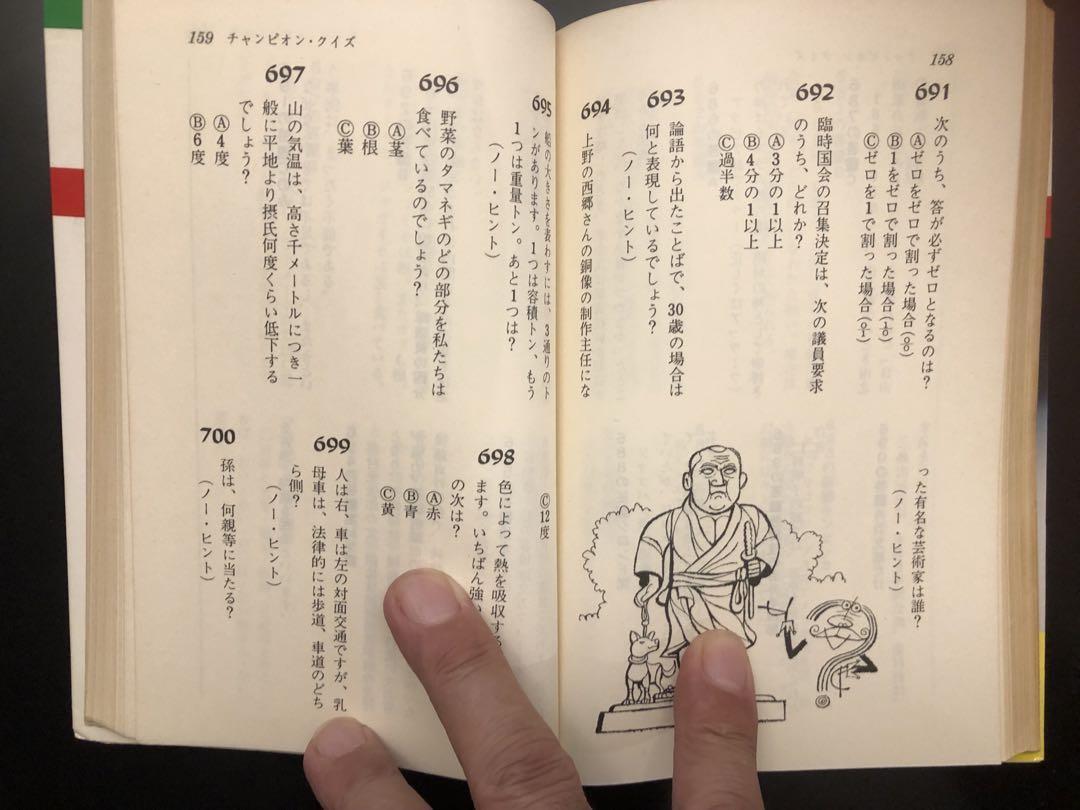 158
691
次のうち、答が必ずゼロとなるのは?
Ⓐゼロをゼロで割った場合(0/0)
Ⓑ1をゼロで割った場合(1/0)
Ⓒゼロを1で割った場合(0/1)
692
臨時国会の召集決定は、次の議員要求
のうち、どれか?
Ⓐ3分の1以上
Ⓑ4分の1以上
Ⓒ過半数
693
論語から出たことばで、30歳の場合は
何と表現しているでしょう?
(ノー・ヒント)
694
上野の西郷さんの銅像の制作主任にな
った有名な芸術家は誰?
(ノー・ヒント)
159 チャンピオン・クイズ
695
船の大きさを表わすには、3通りのト
ンがあります。1つは容積トン、もう
1つは重量トン。あと1つは?
(ノー・ヒント)
696
野菜のタマネギのどの部分を私たちは
食べているのでしょう?
Ⓐ茎
Ⓑ根
Ⓒ葉
697
山の気温は、高さ千メートルにつき一
般に平地より摂氏何度くらい低下する
でしょう?
Ⓐ4度
Ⓑ6度
Ⓒ12度
698
色によって熱を吸収する
ます。いちばん強い
の次は?
Ⓐ赤
Ⓑ青
Ⓒ黄
699
人は右、車は左の対面交通ですが、乳
母車は、法律的には歩道、車道のどち
ら側?
(ノー・ヒント)
700
孫は、何親等に当たる?
(ノー・ヒント)